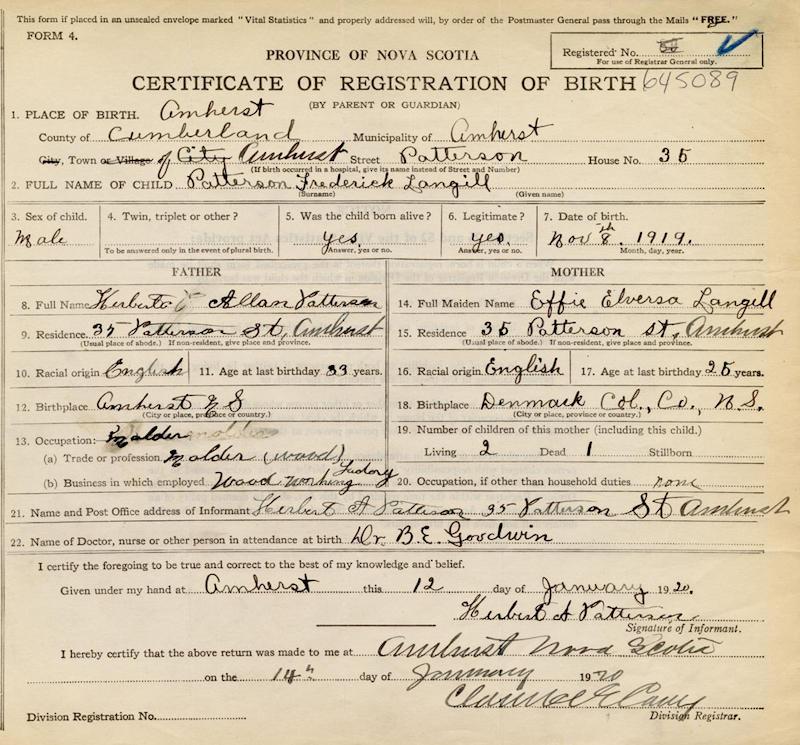 This form if placed in an unsealed envelope marked "Vital Statistics" and properly addressed will, by order of the Postmaster General pass through the Mails "FREE."
FORM 4.
PROVINCE OF NOVA SCOTIA
Registered No.
For use of Registrar General only.
CERTIFICATE OF REGISTRATION OF BIRTH 645089
(BY PARENT OR GUARDIAN)
1. PLACE OF BIRTH. Amherst
County of Cumberland Municipality of Amherst
City, Town or Village of City Amherst Street Patterson House No. 35
(If birth occurred in a hospital, give its name instead of Street and Number)
2. FULL NAME OF CHILD Patterson Frederick Langill
(Surname) (Given name)
3. Sex of child. 4. Twin, triplet or other? 5. Was the child born alive? 6. Legitimate? 7. Date of birth.
Male yes. yes. Nov 8th. 1919.
To be answered only in the event of plural birth. Answer, yes or no. Answer, yes or no. Month, day, year.
FATHER MOTHER
8. Full Name Herbert Allan Patterson 14. Full Maiden Name Effie Elversa Langill
9. Residence. 35 Patterson St, Amherst 15. Residence 35 Patterson st, Amherst
(Usual place of abode.) If non-resident, give place and province. (Usual place of abode.) If non-resident, give place and province.
10. Racial origin English 11. Age at last birthday 33 years. 16. Racial origin English 17. Age at last birthday 25 years.
12. Birthplace Amherst N S 18. Birthplace Denmark Col., Co., N.S.
(City or place, province or country.) (City or place, province or country.)
13. Occupation: Molder 19. Number of children of this mother (including this child.)
(a) Trade or profession Molder (wood) Living 2 Dead 1 Stillborn
(b) Business in which employed Wood Working Factory 20. Occupation, if other than household duties none
21. Name and Post Office address of Informant Herbert A Patterson 35 Patterson St Amherst
22. Name of Doctor, nurse or other person in attendance at birth Dr. B.E. Goodwin
I certify the foregoing to be true and correct to the best of my knowledge and belief.
Given under my hand at Amherst this 12 day of January 1920.
Herbert A Patterson
Signature of Informant.
I hereby certify that the above return was made to me at Amherst Nova Scotia
on the 14th day of January 1920
Division Registration No. Division Registrar.